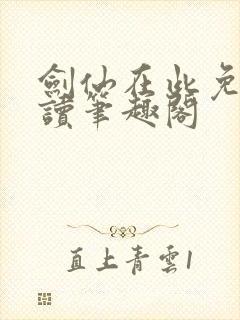 劍仙在此免
讀筆趣閣
直上青雲1